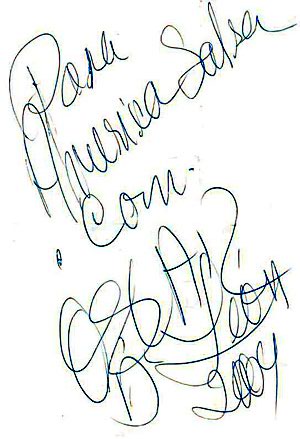 Para
America Salsa
.com.
D' León
2004